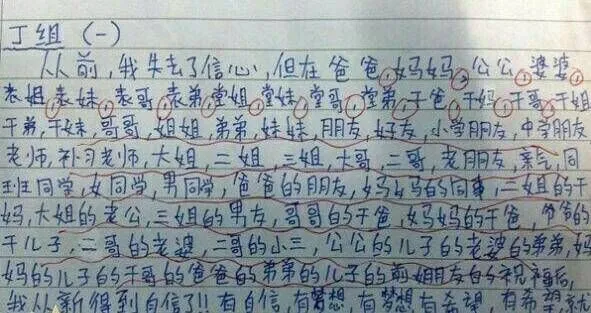 丁组 (一)
从前,我失去了信心,但在爸爸,妈妈,公公,婆婆
表姐,表妹,表哥,表弟,堂姐,堂妹,堂哥,堂弟,干爸,干妈,干哥,干姐
干弟,干妹,哥哥,姐姐,弟弟,妹妹,朋友,好友,小学朋友,中学朋友
老师,补习老师,大姐,二姐,三姐,大哥,二哥,老朋友,亲戚,同
班同学,女同学,男同学,爸爸的朋友,妈妈的同事,二姐的干
妈,大姐的老公,三姐的男友,哥哥的干爸,妈妈的干爸,爷爷的
干儿子,二哥的老婆,二哥的小三,公公的儿子的老婆的弟弟,妈
妈的儿子的干哥的爸爸的弟弟的儿子的前女朋友的祝福后,
我从新得到自信了!!有自信,有梦想,有梦想有希望,有希望,就